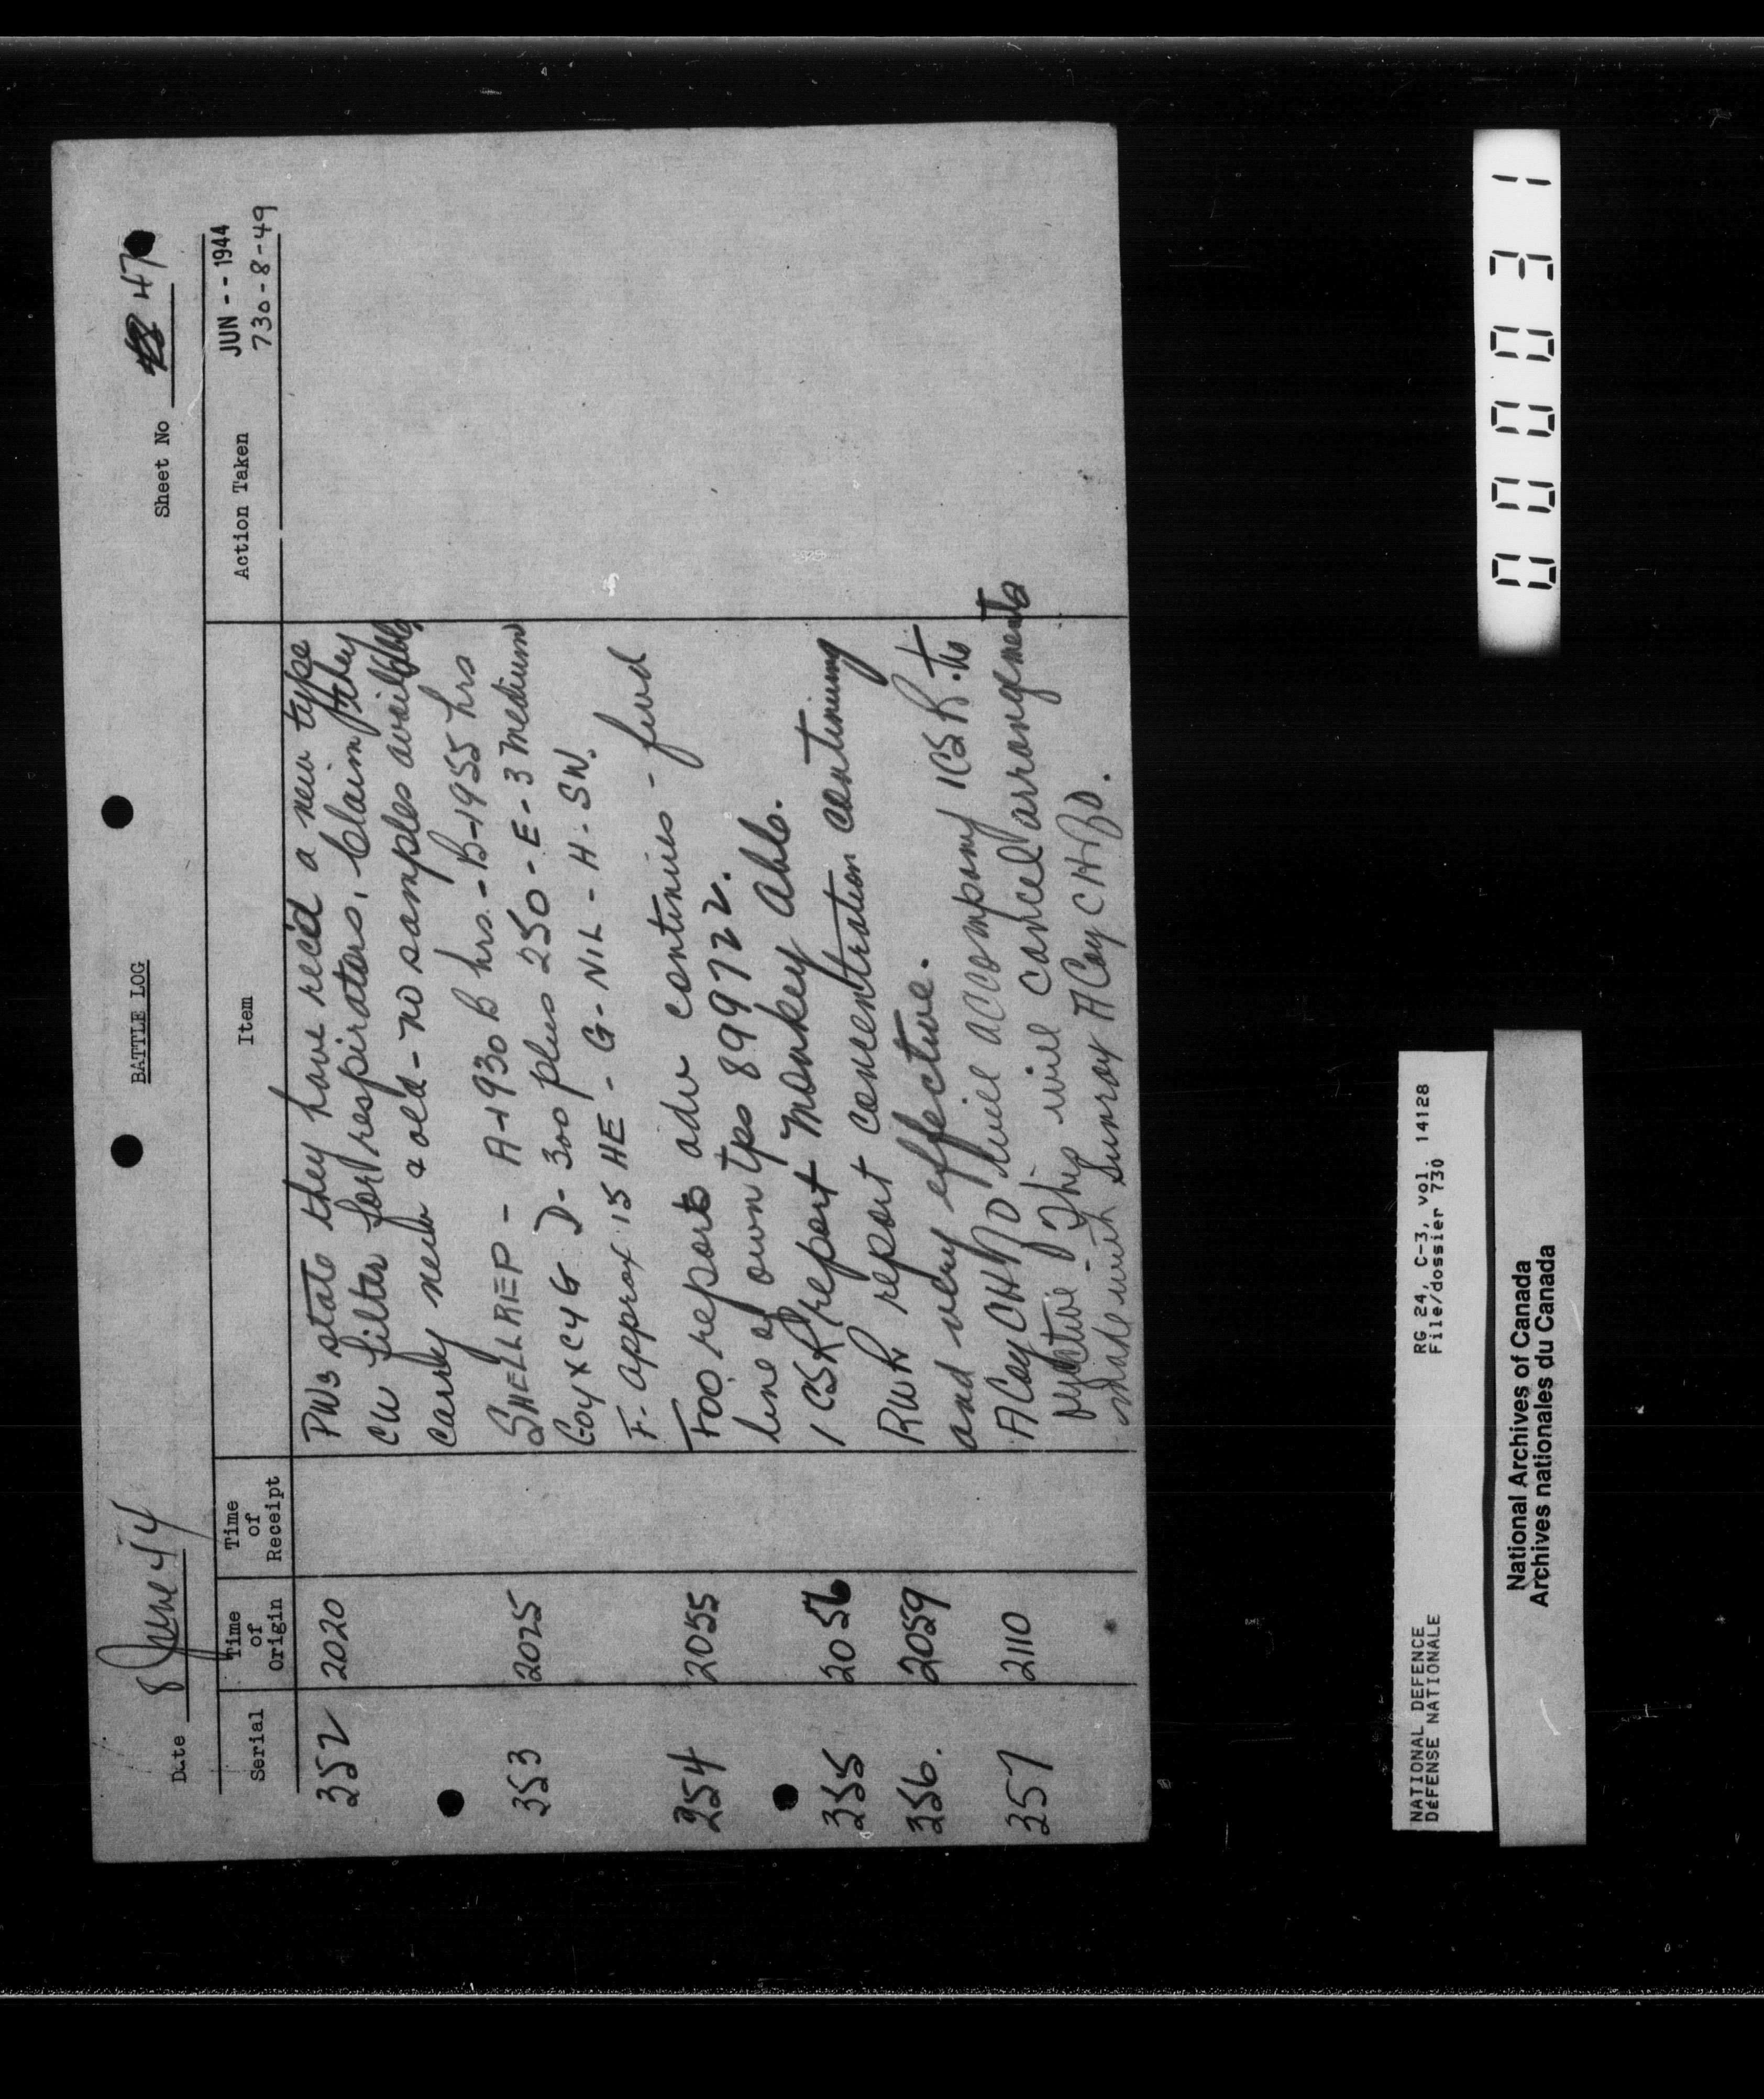 Date 8 June 44
BATTLE LOG
Sheet No 47
Serial
Time of Origin
Time of Receipt
Item
Action Taken
JUN -- 1944
730-8-49
352 2020 PWs state they have rec'd a new type
CW filter for respirators. Claim they
carry new & old - no samples available
353 2025 SHELLREP - A-1930 B hrs. - B-1955 hrs
D - 300 plus 250 - E - 3 Medium
F. approx 15 HE - G - NIL - H - SW.
354 2055 FOO reports adv continues - fwd
line of own tps 899722.
355 2056 1 CSR report Monkey Able.
356. 2059 RWR report concentration continuing
and very effective.
357 2110 A Coy CH of O will accompany 1CSR. to
This will cancel arrangements
made with Sunray A Coy CH of O.
000031
NATIONAL DEFENCE
DÉFENSE NATIONALE
RG 24, C-3, vol. 14128
File/dossier 730
National Archives of Canada
Archives nationales du Canada